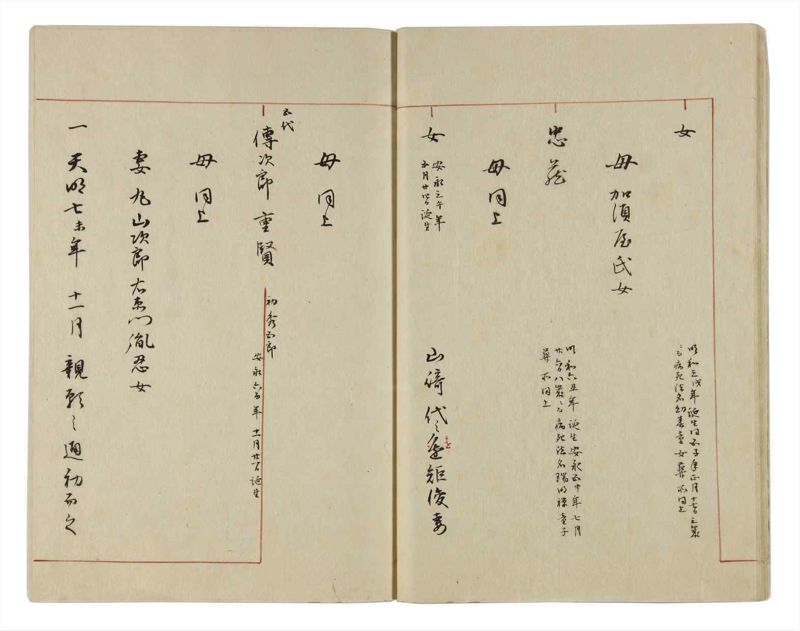 女
明和三戌年誕生同五子年正月十日三歳
ニ而病死法名幼春童女葬所同上
母 加須屋氏女
忠藏
明和六丑年誕生安永五申年七月
廿日八歳ニ而病死法名瑞明禅童子
葬所同上
母同上
女
安永三午年
五月廿日誕生
山﨑代之進矩俊妻
母同上
五代
傳次郎重賢
初秀五郎
安永六酉年十一月廿日誕生
母同上
妻 丸山次郎右衛門胤忍女
一 天明七未年 十一月 親願之通初而之